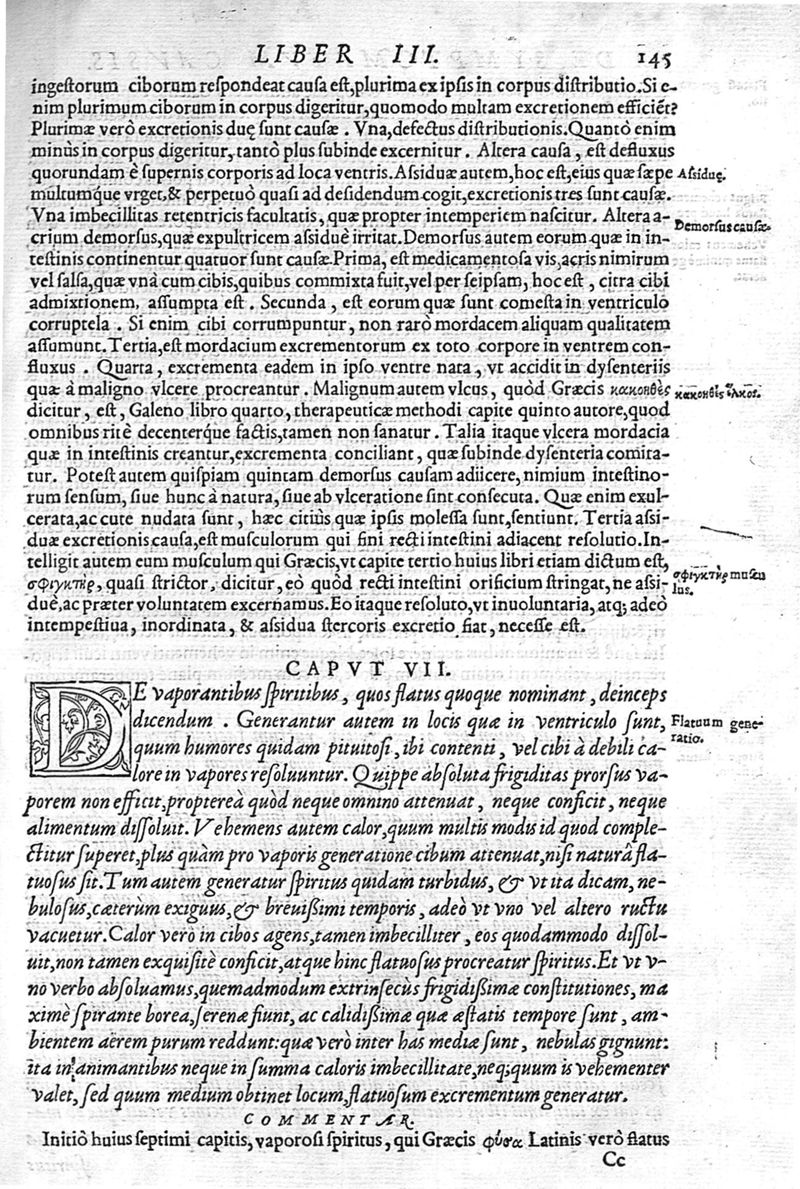 LIBER III. 145
ingestorum ciborum respondeat causa est, plurima ex ipsis in corpus distributio. Si e-
nim plurimum ciborum in corpus digeritur, quomodo multam excretionem efficiẽt?
Plurimæ verò excretionis duę sunt causæ. Vna, defectus distributionis. Quantò enim
minùs in corpus digeritur, tantò plus subinde excernitur. Altera causa, est defluxus
quorundam è supernis corporis ad loca ventris. Assiduæ autem, hoc est, eius quæ sæpe
Assiduę.
multumq́ue vrget, & perpetuò quasi ad desidendum cogit, excretionis tres sunt causæ.
Vna imbecillitas retentricis facultatis, quæ propter intemperiem nascitur. Altera a-
Demorsus causæ.
crium demorsus, quæ expultricem assiduè irritat. Demorsus autem eorum quæ in in-
testinis continentur quatuor sunt causæ. Prima, est medicamentosa vis, acris nimirum
vel salsa, quæ vnà cum cibis, quibus commixta fuit, vel per seipsam, hoc est, citra cibi
admixtionem, assumpta est. Secunda, est eorum quæ sunt comesta in ventriculo
corruptela. Si enim cibi corrumpuntur, non rarò mordacem aliquam qualitatem
assumunt. Tertia, est mordacium excrementorum ex toto corpore in ventrem con-
fluxus. Quarta, excrementa eadem in ipso ventre nata, vt accidit in dysenteriis
quæ à maligno vlcere procreantur. Malignum autem vlcus, quòd Græcis κακοηθὲς
κακοηθὲς ἕλκος.
dicitur, est, Galeno libro quarto, therapeuticæ methodi capite quinto autore, quod
omnibus ritè decenterq́ue factis, tamen non sanatur. Talia itaque vlcera mordacia
quæ in intestinis creantur, excrementa conciliant, quæ subinde dysenteria comita-
tur. Potest autem quispiam quintam demorsus causam adiicere, nimium intestino-
rum sensum, siue hunc à natura, siue ab vlceratione sint consecuta. Quæ enim exul-
cerata, ac cute nudata sunt, hæc citiùs quæ ipsis molessa sunt, sentiunt. Tertia assi-
duæ excretionis causa, est musculorum qui fini recti intestini adiacent resolutio. In-
telligit autem eum musculum qui Græcis, vt capite tertio huius libri etiam dictum est,
σφιγκτὴρ, quasi strictor, dicitur, eò quòd recti intestini orificium stringat, ne assi-
σφιγκτὴρ muscu
lus.
duè, ac præter voluntatem excernamus. Eo itaque resoluto, vt inuoluntaria, atq; adeò
intempestiua, inordinata, & assidua stercoris excretio fiat, necesse est.
CAPVT VII.
DE vaporantibus spiritibus, quos flatus quoque nominant, deinceps
dicendum. Generantur autem in locis quæ in ventriculo sunt,
Flatuum gene-
ratio.
quum humores quidam pituitosi, ibi contenti, vel cibi à debili ca-
lore in vapores resoluuntur. Quippe absoluta frigiditas prorsus va-
porem non efficit, propterea quòd neque omnino attenuat, neque conficit, neque
alimentum dissoluit. Vehemens autem calor, quum multis modis id quod comple-
ctitur superet, plus quàm pro vaporis generatione cibum attenuat, nisi naturâ fla-
tuosus sit. Tum autem generatur spiritus quidam turbidus, & vt ita dicam, ne-
bulosus, cæterùm exiguus, & breuißimi temporis, adeò vt vno vel altero ructu
vacuetur. Calor verò in cibos agens, tamen imbecilliter, eos quodammodo dissol-
uit, non tamen exquisitè conficit, atque hinc flatuosus procreatur spiritus. Et vt v-
no verbo absoluamus, quemadmodum extrinsecùs frigidißimæ constitutiones, ma
ximè spirante borea, serenæ fiunt, ac calidißimæ quæ æstatis tempore sunt, am-
bientem aërem purum reddunt: quæ verò inter has mediæ sunt, nebulas gignunt:
ita in animantibus neque in summa caloris imbecillitate, neq; quum is vehementer
valet, sed quum medium obtinet locum, flatuosum excrementum generatur.
COMMENTAR.
Initiò huius septimi capitis, vaporosi spiritus, qui Græcis φύσαι Latinis verò flatus
Cc